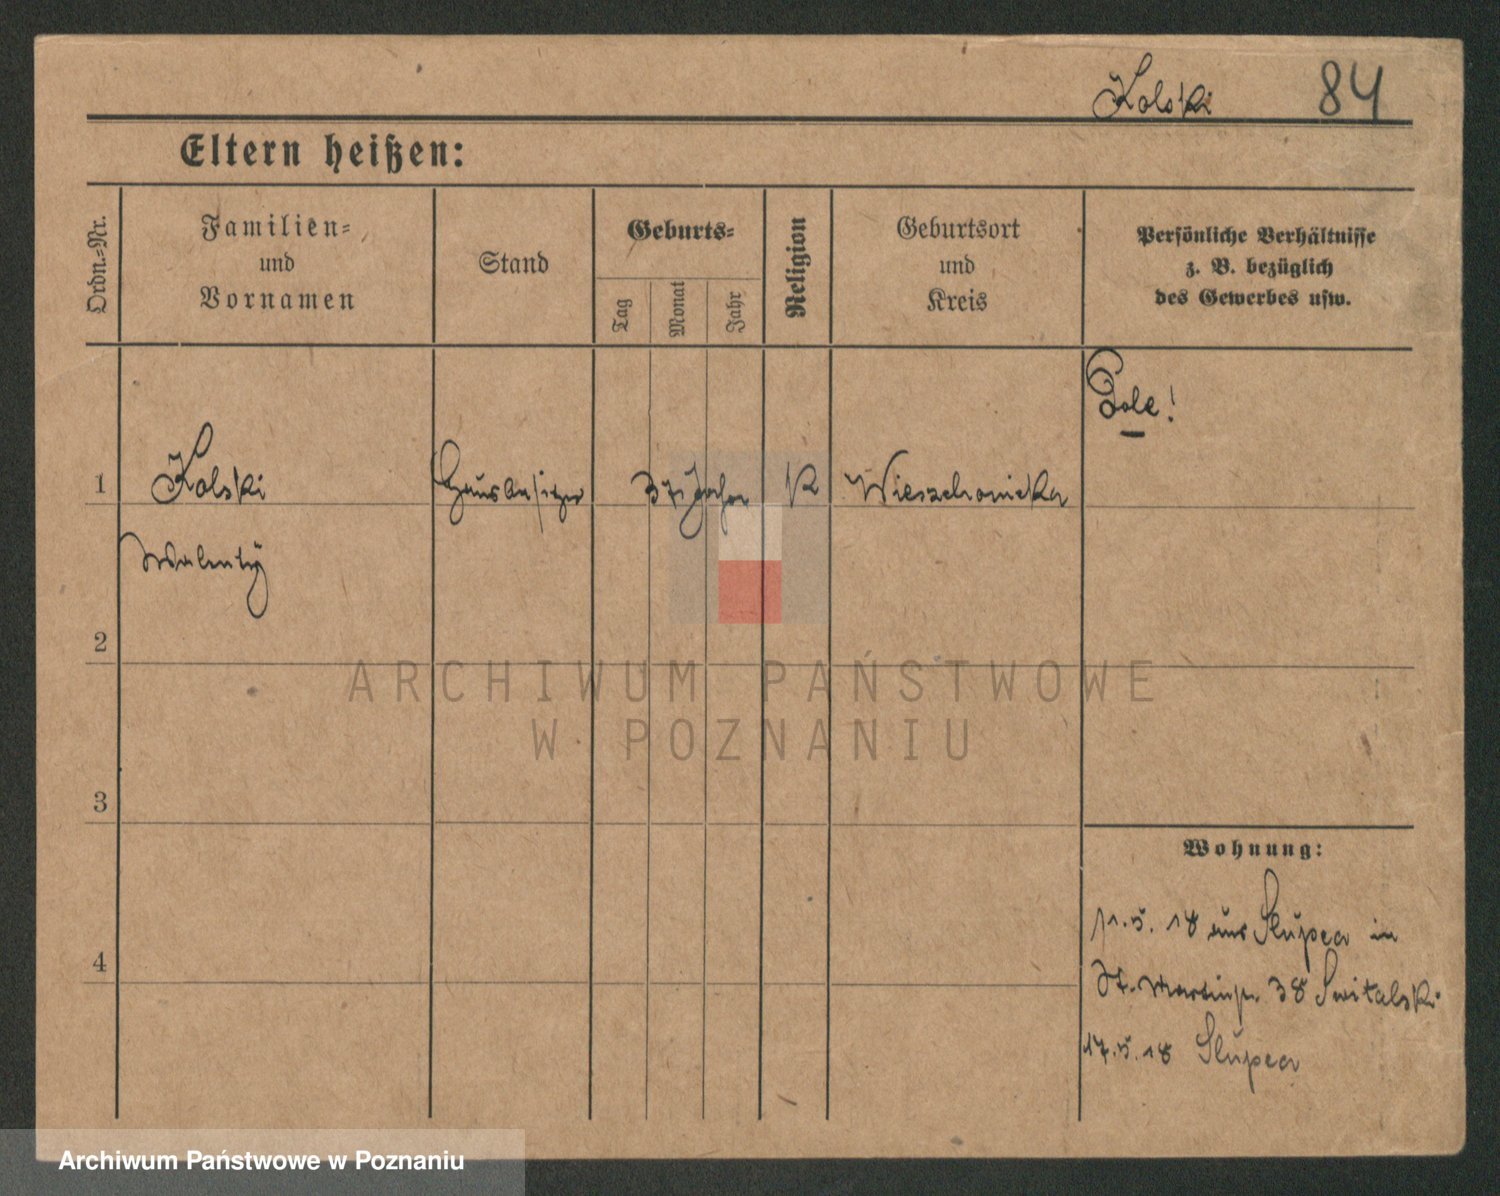 Kolski 84
Eltern heißen:
Ordn.=Nr.
Familien=
und
Vornamen
Stand
Geburts=
Tag
Monat
Jahr
Religion
Geburtsort
und
Kreis
Persönliche Verhältnisse
z. B. bezüglich
des Gewerbes usw.
Pole!
1 Kolski Hausbesitzer 37 Jahre K
Walenty
2
3
4
Wohnung:
11.5.18 aus Slupca in
St. Martinstr. 38 Switalski
17.5.18 Slupca
ARCHIWUM PAŃSTWOWE
W POZNANIU
Archiwum Państwowe w Poznaniu